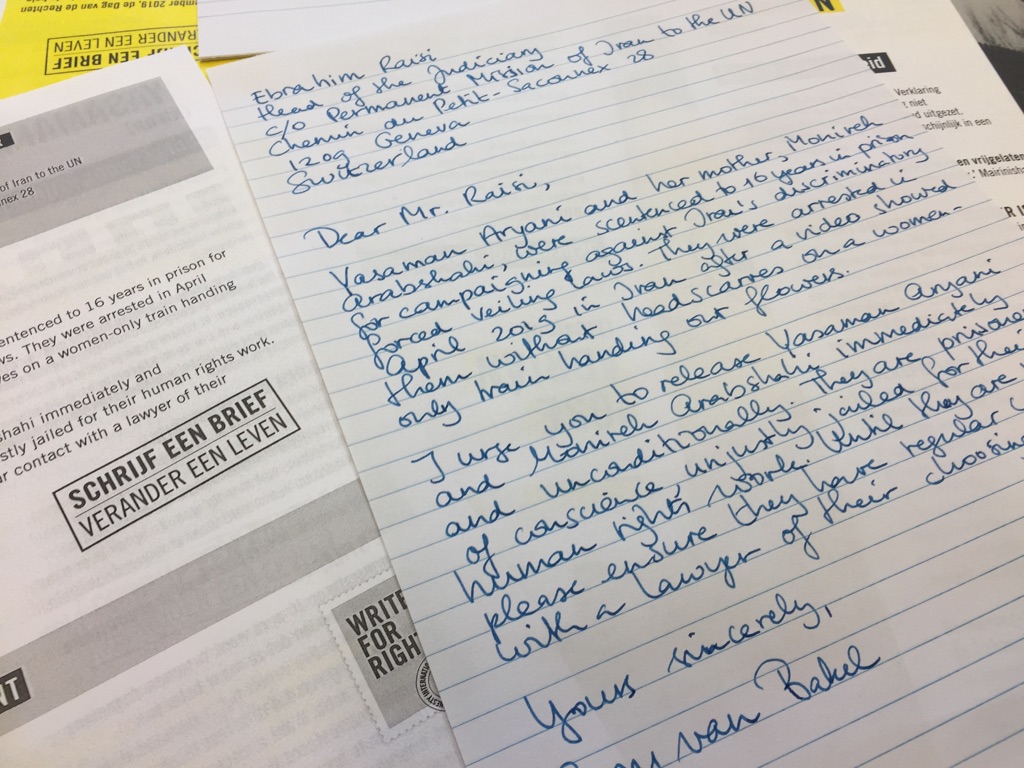 ember 2019, de Dag van de Rechten
EEN BRIEF
ANDER EEN LEVEN
of Iran to the UN
nex 28
entenced to 16 years in prison for
ws. They were arrested in April
ves on a women-only train handing
shahi immediately and
stly jailed for their human rights work.
ar contact with a lawyer of their
SCHRIJF EEN BRIEF
VERANDER EEN LEVEN
WRITE
FOR
RIGH
RT
Ebrahim Raisi
Head of the Judiciary
c/o Permanent Mission of Iran to the UN
Chemin du Petit-Saconnex 28
1209 Geneva
Switzerland
Dear Mr. Raisi,
Yasaman Aryani and her mother, Monireh
Arabshahi, were scentenced to 16 years in prison
for campaigning against Iran's discriminatory
forced veiling laws. They were arrested in
April 2019 in Iran after a video showed
them without headscarves on a women-
only train handing out flowers.
I urge you to release Yasaman Aryani
and Monireh Arabshahi immediately
and unconditionally. They are prisone
of conscience, unjustly jailed for their
human rights work. Until they are
please ensure they have regular
with a lawyer of their choosing
Yours sincerely,
van Bakel
id
Verklaring
niet
d uitgezet.
schijnlijk in een
en vrijgelaten
Mairinishs